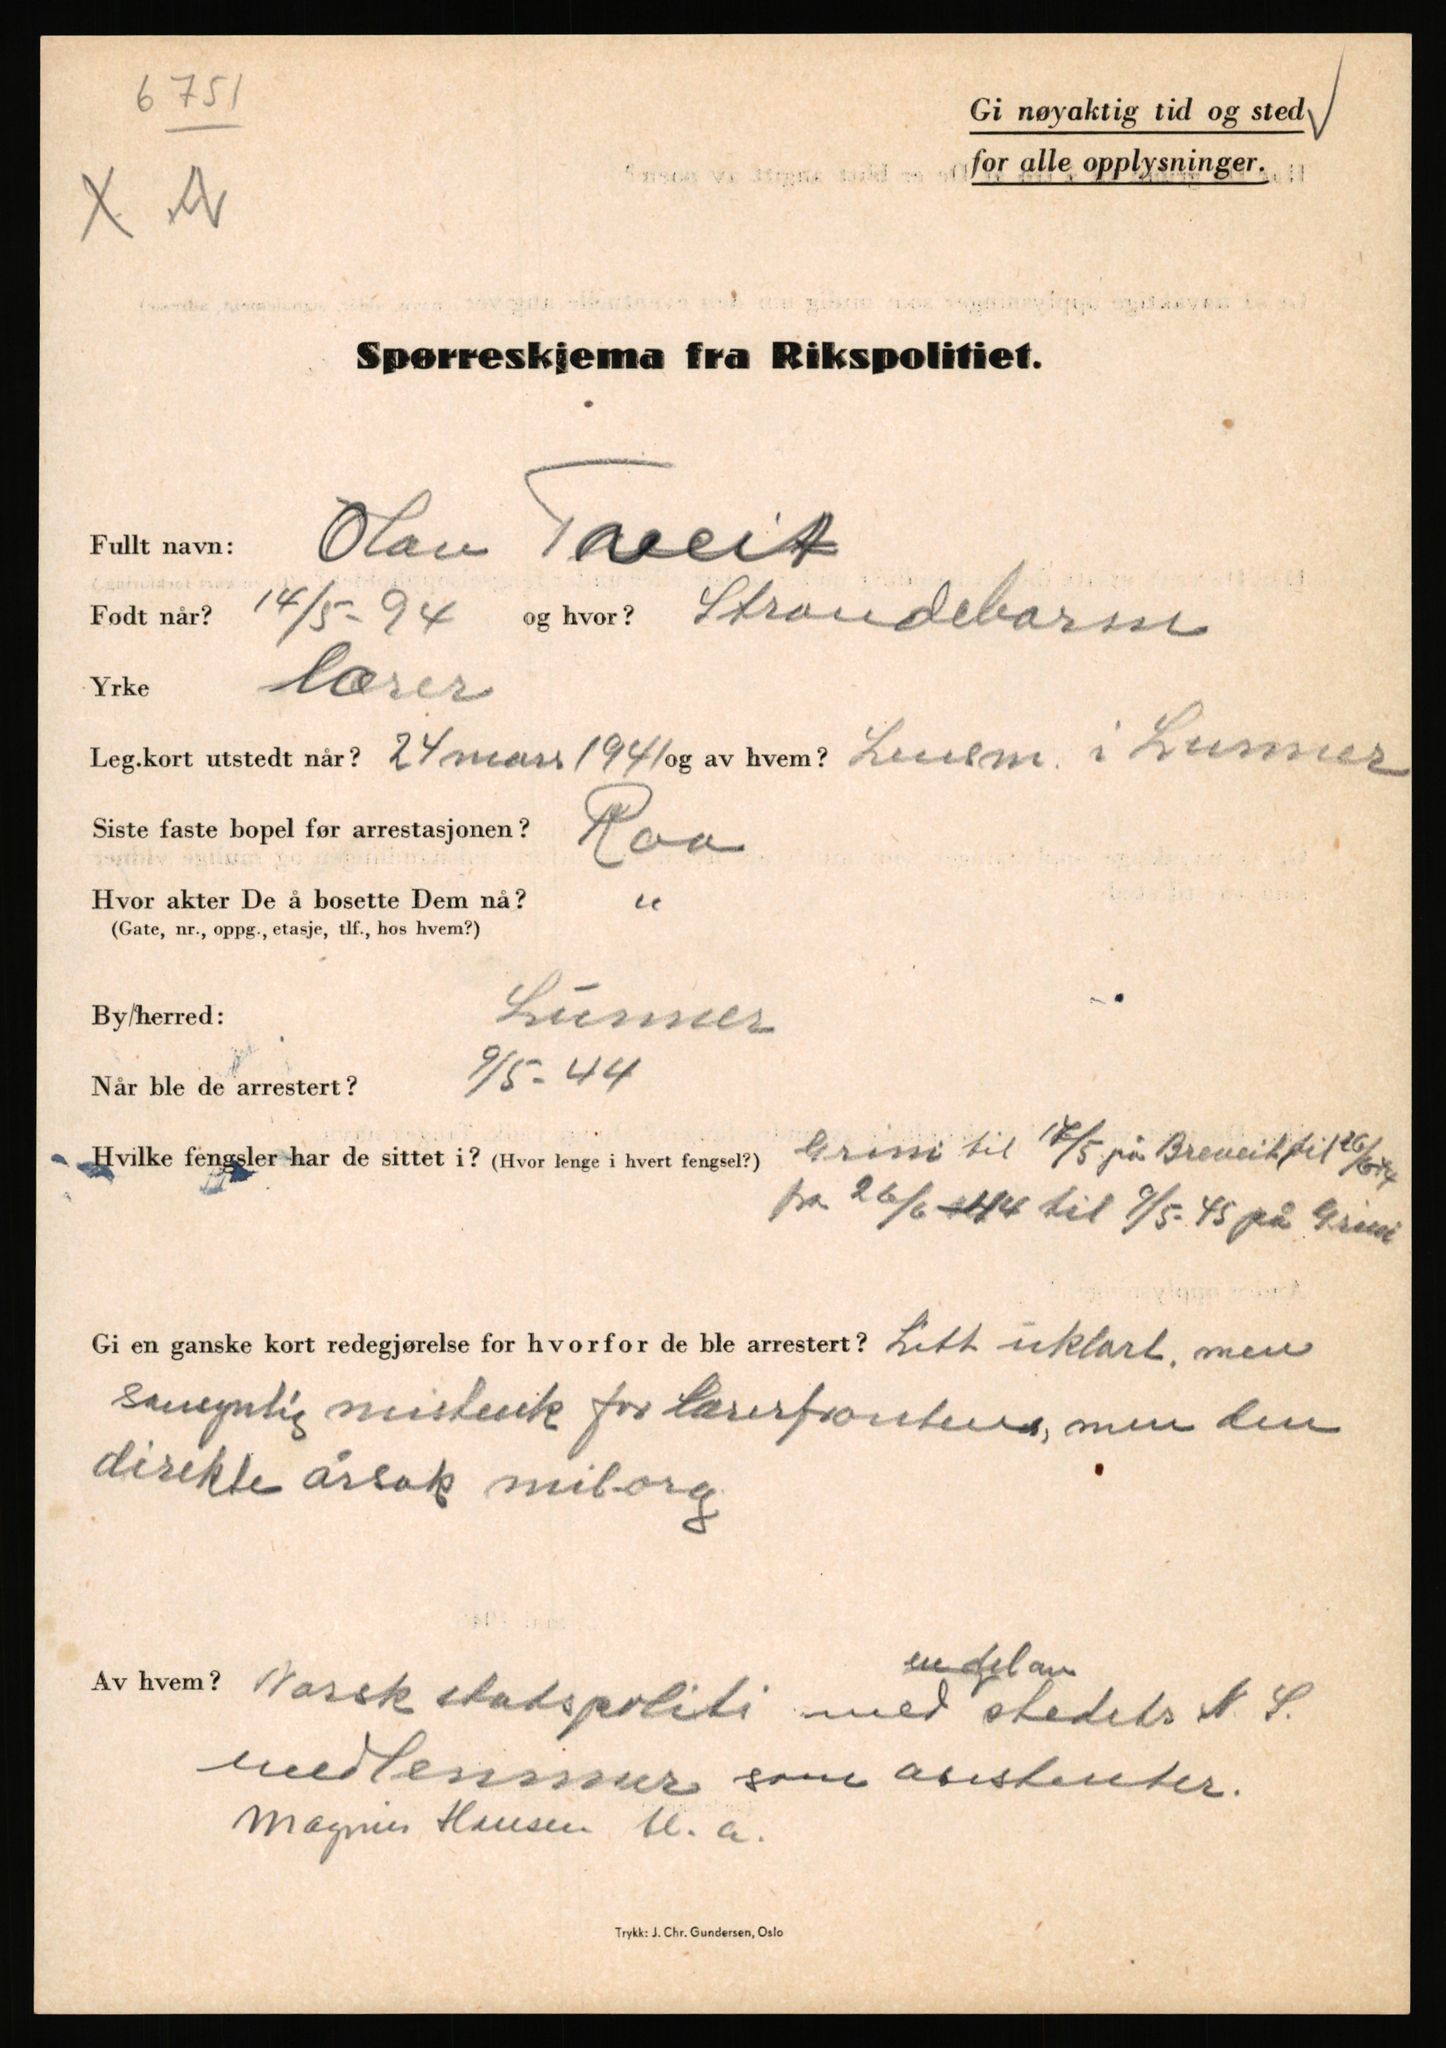 6 751
Gi nøyaktig tid og sted
for alle opplysninger.
X
Spørreskjema fra Rikspolitiet.
Fullt navn: Olav Tveit
Født når? 14/5-94 og hvor? Strandebarm
Yrke lærer
Leg.kort utstedt når? 24 mars 1941 og av hvem? Lensm. i Lunner
Siste faste bopel før arrestasjonen? Roa
Hvor akter De å bosette Dem nå? "
(Gate, nr., oppg., etasje, tlf., hos hvem?)
By/herred: Lunner
Når ble de arrestert? 9/5-44
Hvilke fengsler har de sittet i? (Hvor lenge i hvert fengsel?) Grini til 17/5 på Breveit til 26/6-44
fra 26/6 44 til 9/5-45 på Grini
Gi en ganske kort redegjørelse for hvorfor de ble arrestert? Litt uklart, men
sansynlig mistenk for lærerfronten, men den
direkte årsak milorg
Av hvem? Norsk statspoliti med en del av stedets N. S.
medlemmer som asistenter.
Magnus Hansen bl. a.
Trykk: J. Chr. Gundersen, Oslo